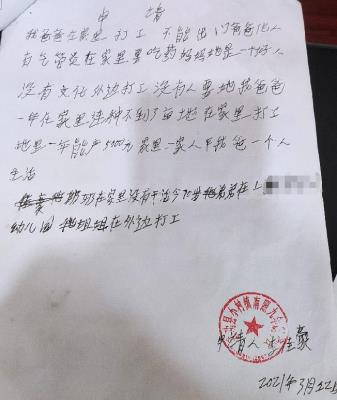 申 请
我爸爸在家里打工 不能出门爸爸他人
有气管炎在家里要吃药妈妈她是一个好人
没有文化外边打工没有人要她我爸爸
一年在家里种不到了亩土地在家里打工
地里一年能产5000为家里一家人甲我爸一个人
生活
奶奶在家里没有干活今年弟弟在上
幼儿园 姐姐在外边打工
申请人
2021年3月22日